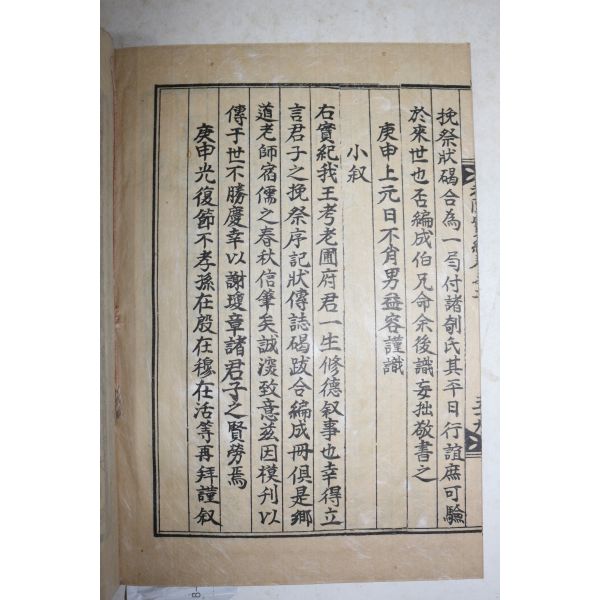 挽祭狀碣合為一局付諸剞氏其平日行誼庶可驗
於來世也否編成伯兄命余後識妄拙敬書之
庚申上元日不肖男益容謹識
小叙
右實紀我王考老圃府君一生修德叙事也幸得立
言君子之挽祭序記狀傳誌碣跋合編成冊俱是鄉
道老師宿儒之春秋信筆矣誠深致意茲因模刊以
傳于世不勝慶幸以謝瓊章諸君子之賢勞焉
庚申光復節不孝孫在殷在穆在活等再拜謹叙